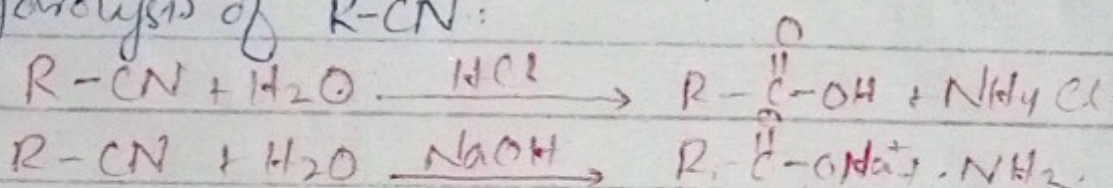 of R-CN:
R-CN + H2O HCl → R-C-OH + NH4Cl
O
R-CN + H2O NaOH → R-C-ONa+ + NH2.
O